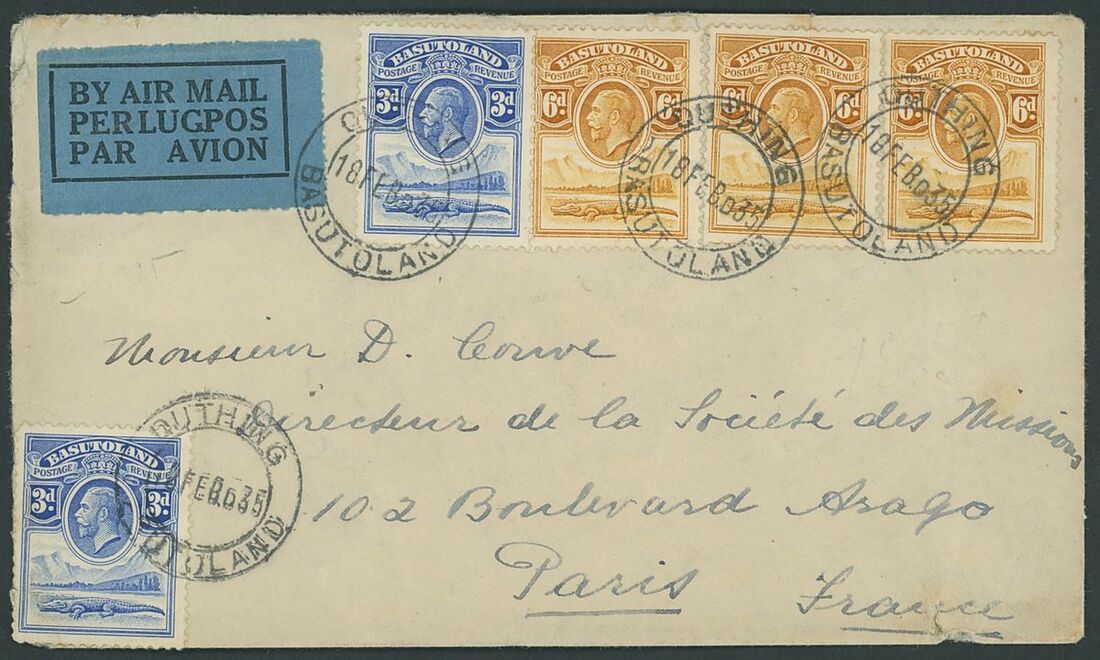 BY AIR MAIL
PER LUGPOS
PAR AVION
BASUTOLAND
POSTAGE REVENUE
3d 3d
BASUTOLAND
POSTAGE REVENUE
6d 6d
BASUTOLAND
POSTAGE REVENUE
6d 6d
BASUTOLAND
POSTAGE REVENUE
6d 6d
18 FEB 35
BASUTOLAND
QUTHING
18 FEB 35
BASUTOLAND
QUTHING
18 FEB 35
BASUTOLAND
Monsieur D. Couve
Directeur de la Société des Missions
102 Boulevard Arago
Paris France
BASUTOLAND
POSTAGE REVENUE
3d 3d
QUTHING
18 FEB 35